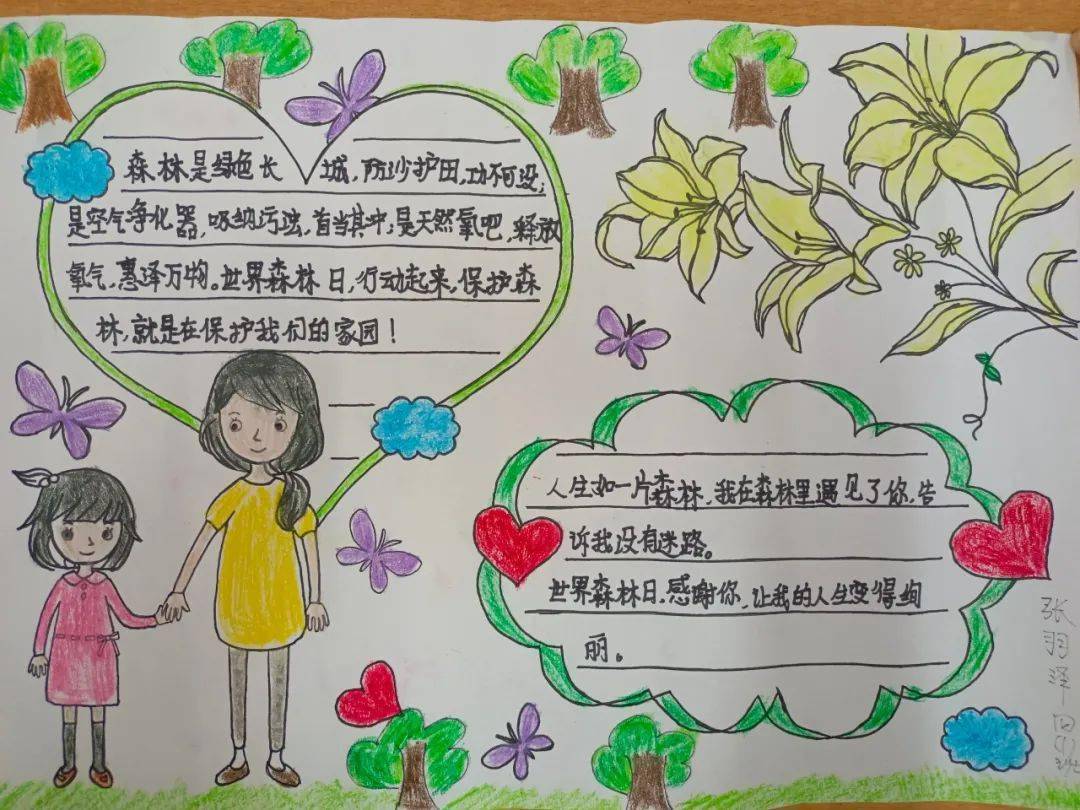 森林是绿色长城，防沙护田，功不可没；
是空气净化器，吸纳污浊，首当其中；是天然氧吧，释放
氧气，惠泽万物。世界森林日，行动起来，保护森
林，就是在保护我们的家园！
人生如一片森林，我在森林里遇见了你，告
诉我没有迷路。
世界森林日，感谢你，让我的人生变得绚
丽。
张羽泽 四(1)班